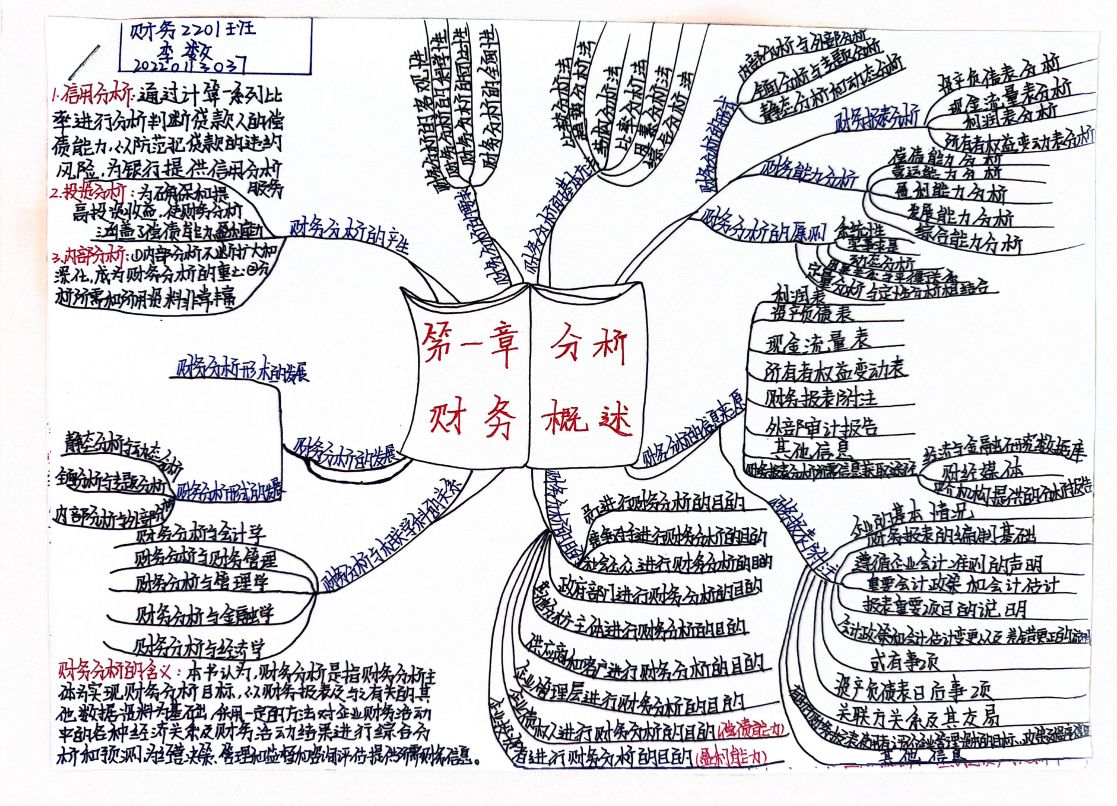 财务2201班
李数
20220113037
1.信用分析:通过计算一系列比
率进行分析判断贷款人的偿
债能力,以防范把贷款的违约
风险,为银行提供信用分析
服务
2.投资分析:为确保和提
高投资收益,使财务分析
涵盖了偿债能力盈利能力
3.内部分析:①内部分析不断扩大和
深化,成为财务分析的重心②分
析所需和所用资料非常丰富
财务分析的产生
财务分析形术的发展
静态分析与动态分析
全面分析与专题分析
内部分析与外部分析
财务分析形式的发展
财务分析的发展
财务分析与会计学
财务分析与财务管理
财务分析与管理学
财务分析与金融学
财务分析与经济学
财务分析与相关学科的关系
财务分析的含义:本书认为,财务分析是指财务分析主
体为实现财务分析目标,以财务报表及与有关的其
他数据资料为基础,采用一定的方法对企业财务活动
中的各种经济关系及财务活动结果进行综合分
析和预测,为经营决策、管理和监督和咨询评估提供所需财务信息。
第一章 分析
财务 概述
财务分析的客观性
财务分析的可比性
财务分析的全面性
财务分析的基本方法
比较分析法
比率分析法
因素分析法
综合分析法
财务分析的形式
内部分析与外部分析
全面分析与专题分析
静态分析和动态分析
财务报表分析
资产负债表分析
现金流量表分析
利润表分析
所有者权益变动表分析
财务能力分析
偿债能力分析
营运能力分析
盈利能力分析
发展能力分析
综合能力分析
财务分析的原则
系统性
动态分析
定量分析与定性分析相结合
财务分析的信息来源
利润表
资产负债表
现金流量表
所有者权益变动表
财务报表附注
外部审计报告
其他信息
财务报表分析所需信息获取途径
经济与金融研究数据库
财经媒体
机构提供的分析报告
财务报表附注
企业的基本情况
财务报表的编制基础
遵循企业会计准则的声明
重要会计政策和会计估计
报表重要项目的说明
会计政策和会计估计变更以及差错更正的说明
或有事项
资产负债表日后事项
关联方关系及其交易
其他信息
财务分析的目的
员工进行财务分析的目的
竞争对手进行财务分析的目的
社会公众进行财务分析的目的
政府部门进行财务分析的目的
主体进行财务分析的目的
供应商和客户进行财务分析的目的
企业管理层进行财务分析的目的
企业债权人进行财务分析的目的(偿债能力)
企业投资者进行财务分析的目的(盈利能力)